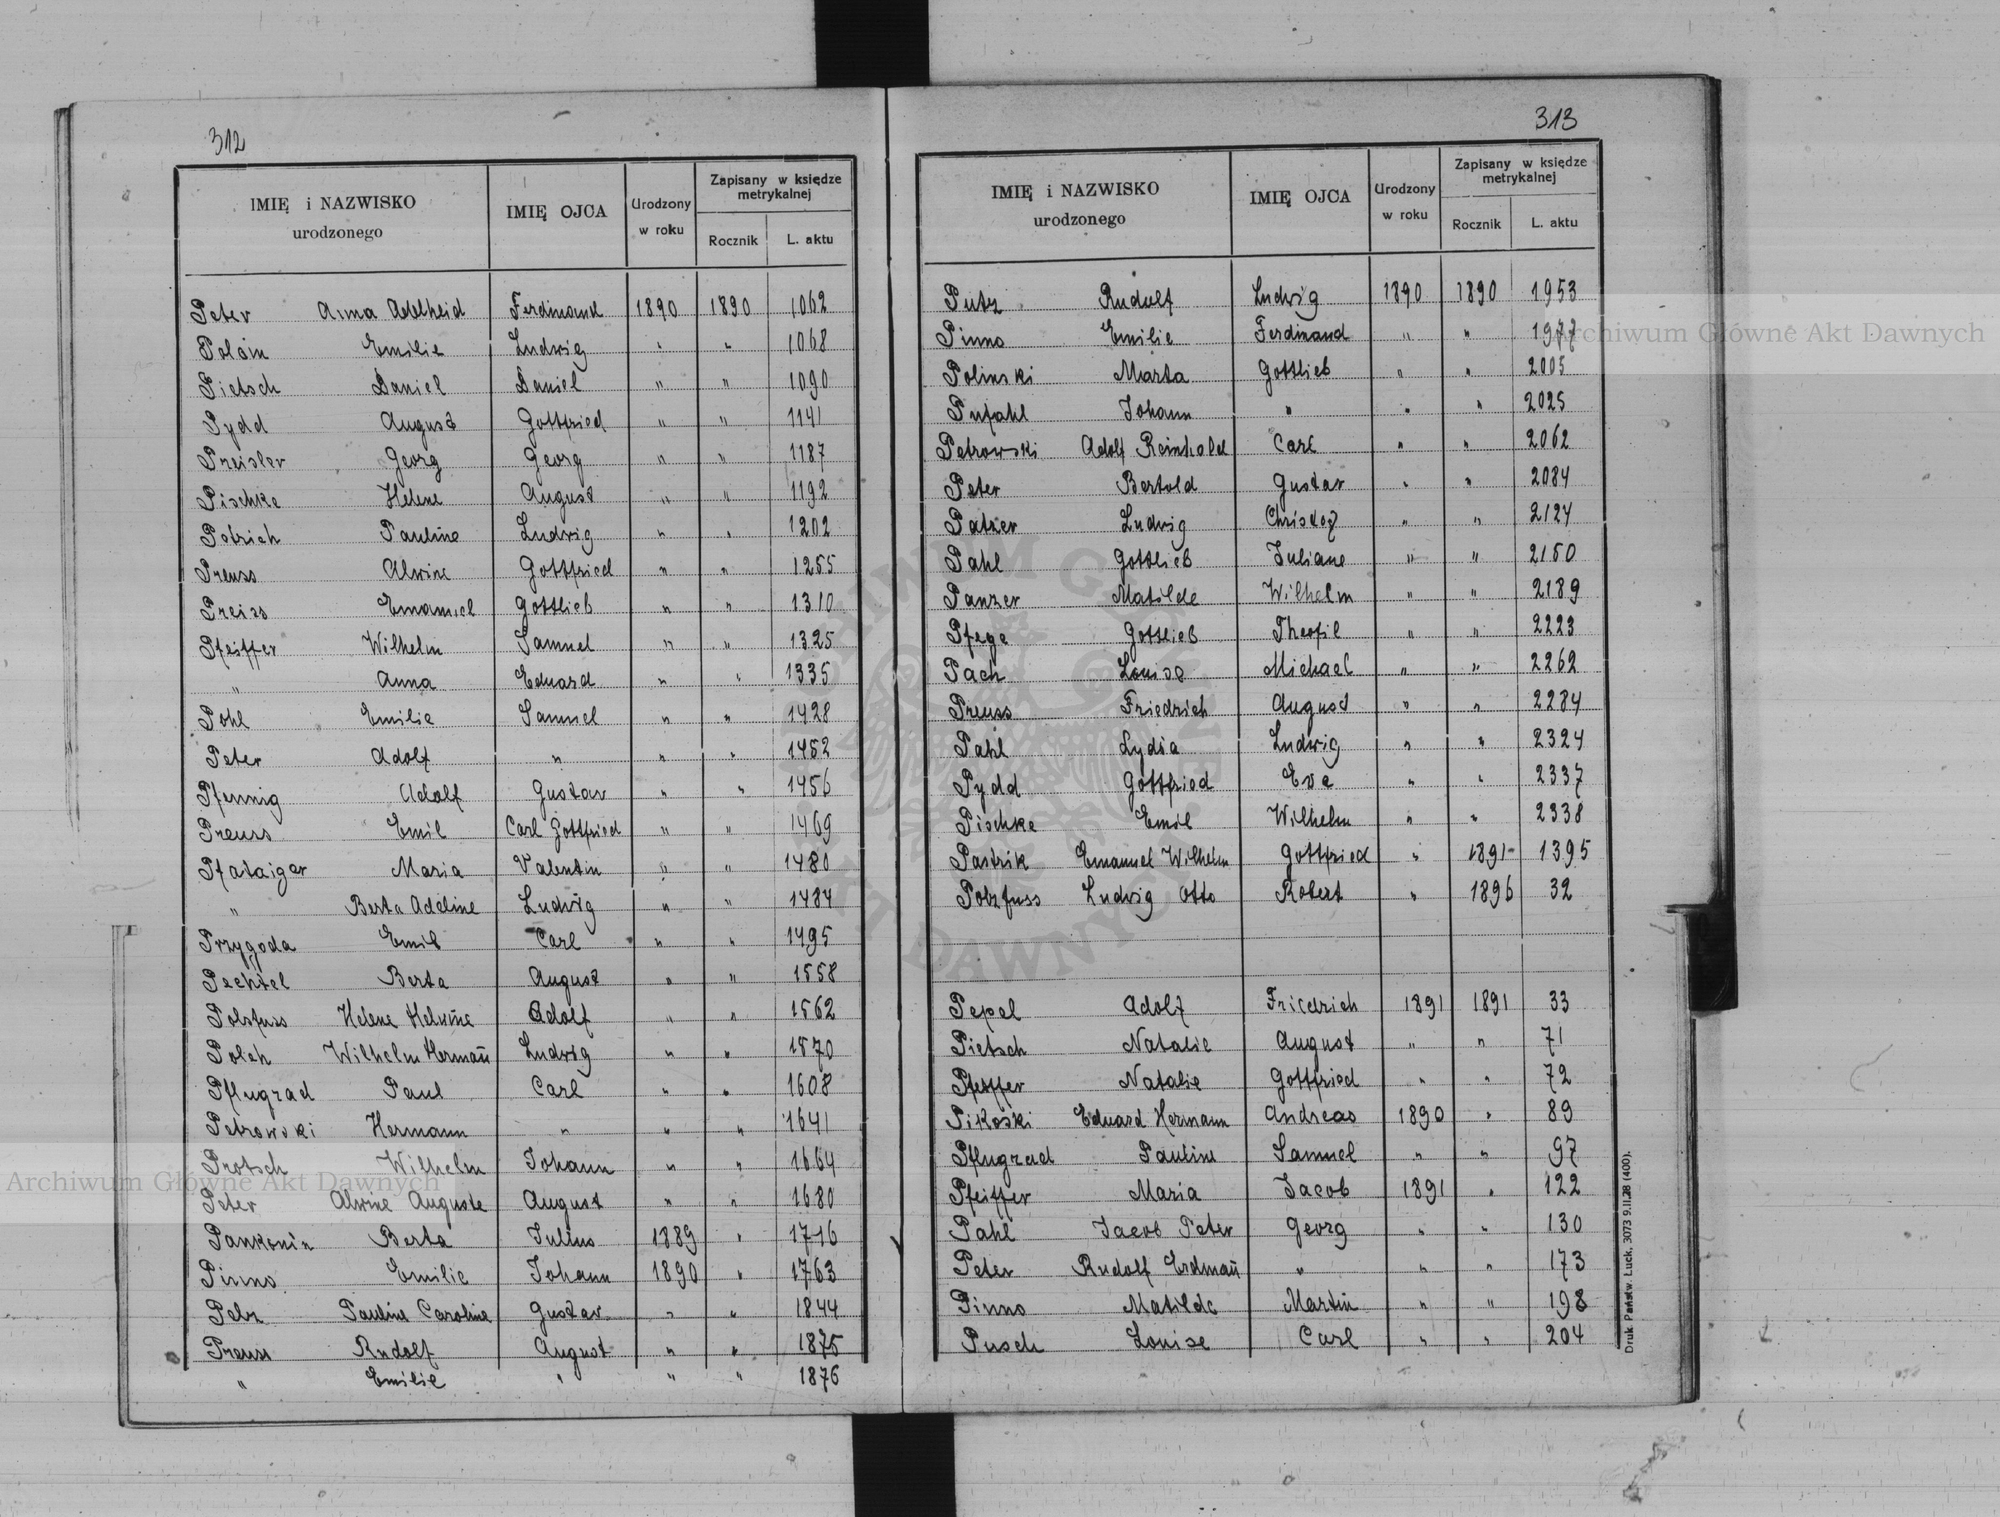 312
IMIĘ i NAZWISKO urodzonego IMIĘ OJCA Urodzony w roku Zapisany w księdze metrykalnej Rocznik L. aktu
Peter Anna Adelheid Ferdinand 1890 1890 1062
Polöin Emilie Ludwig " " 1068
Pietsch Daniel Daniel " " 1090
Pydd August Gottfried " " 1141
Preisler Georg Georg " " 1187
Pischke Helene August " " 1192
Petrich Pauline Ludwig " " 1202
Preuss Alwine Gottfried " " 1255
Preiss Emanuel Gottlieb " " 1310
Pfeiffer Wilhelm Samuel " " 1325
" Anna Eduard " " 1335
Pohl Emilie Samuel " " 1428
Peter Adolf " " " 1452
Pfennig Adolf Gustav " " 1456
Preuss Emil Carl Gottfried " " 1469
Pfataiger Maria Valentin " " 1480
" Berta Adeline Ludwig " " 1484
Przygoda Emil Carl " " 1495
Pechtel Berta August " " 1558
Polsfuss Helene Helmine Adolf " " 1562
Poleh Wilhelm Hermañ Ludwig " " 1570
Pflugrad Paul Carl " " 1608
Petrowski Hermann " " " 1641
Protsch Wilhelm Johann " " 1664
Peter Alwine Auguste August " " 1680
Pankonin Berta Julius 1889 " 1716
Pinno Emilie Johann 1890 " 1763
Pelz Pauline Caroline Gustav " " 1844
Preuss Rudolf August " " 1875
" Emilie " " " 1876
313
IMIĘ i NAZWISKO urodzonego IMIĘ OJCA Urodzony w roku Zapisany w księdze metrykalnej Rocznik L. aktu
Putz Rudolf Ludwig 1890 1890 1953
Pinno Emilie Ferdinand " " 1977
Polinski Marta Gottlieb " " 2005
Pufahl Johann " " " 2025
Petrowski Adolf Reinhold Carl " " 2062
Peter Bertold Gustav " " 2084
Patzer Ludwig Christof " " 2124
Pahl Gottlieb Juliane " " 2150
Panzer Matilde Wilhelm " " 2189
Pfege Gottlieb Theofil " " 2223
Pach Louise Michael " " 2262
Preuss Friedrich August " " 2284
Pahl Lydia Ludwig " " 2324
Pydd Gottfried Eva " " 2337
Pischke Emil Wilhelm " " 2338
Pastrik Emanuel Wilhelm Gottfried " 1891 1395
Polzfuss Ludwig Otto Robert " 1896 32
Pepel Adolf Friedrich 1891 1891 33
Pietsch Natalie August " " 71
Pfeiffer Natalie Gottfried " " 72
Pikoski Eduard Hermann Andreas 1890 " 89
Pflugrad Pauline Samuel " " 97
Pfeiffer Maria Jacob 1891 " 122
Pahl Jacob Peter Georg " " 130
Peter Rudolf Erdmañ " " " 173
Pinno Matilde Martin " " 198
Pusch Louise Carl " " 204
Druk Państw. Łuck, 3073 9.II.28 (400).
Archiwum Główne Akt Dawnych
Archiwum Główne Akt Dawnych
ARCHIWUM GŁÓWNE AKT DAWNYCH